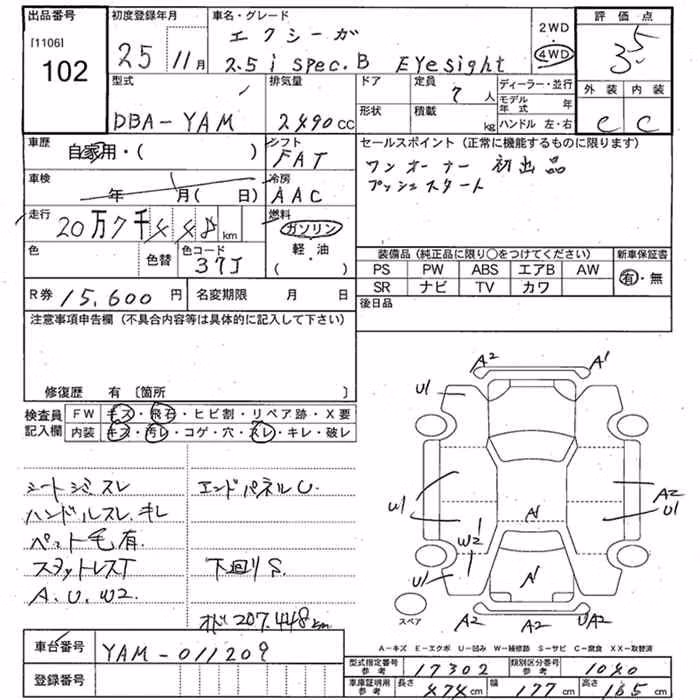 出品番号 初度登録年月 車名・グレード 評価点
[1106] 25 11月 エクシーガ 2WD 3.5
102 2.5i spec.B EyeSight 4WD 外装 内装
型式 排気量 ドア 定員 7人 ディーラー・並行 C C
DBA-YAM 2490cc 形状 積載 kg モデル年式 年
ハンドル 左・右
車歴 自家用・( ) シフト FAT セールスポイント (正常に機能するものに限ります)
車検 年 月( 日) 冷房 AAC ワンオーナー 初出品
プッシュスタート
走行 20万7千448km 燃料 ガソリン
軽・油
( )
色 色替 色コード 37J
装備品 (純正品に限り○をつけてください) 新車保証書
PS PW ABS エアB AW 有・無
SR ナビ TV カワ
R券 15,600円 名変期限 月 日 後日品
注意事項申告欄 (不具合内容等は具体的に記入して下さい)
修復歴 有 [箇所 ]
検査員 FW キズ・飛石・ヒビ割・リペア跡・X要
記入欄 内装 キズ・汚レ・コゲ・穴・スレ・キレ・破レ
シートジミスレ エンドパネルU.
ハンドルスレ.キレ
ペット毛有.
スタットレスT 下回りS.
A.U.W2.
オド207.448km
A2 A1
U1
U1 A2
U1
W2 A1
U1 A1
A2 A2 UA2
スペア
A-キズ E-エクボ U-凹み W-補修跡 S-サビ C-腐食 XX-取替済
車台番号 YAM-011209
登録番号
型式指定番号 参考 17302 類別区分番号 参考 1040
車庫証明用 参考 長さ 474cm 幅 177cm 高さ 165cm